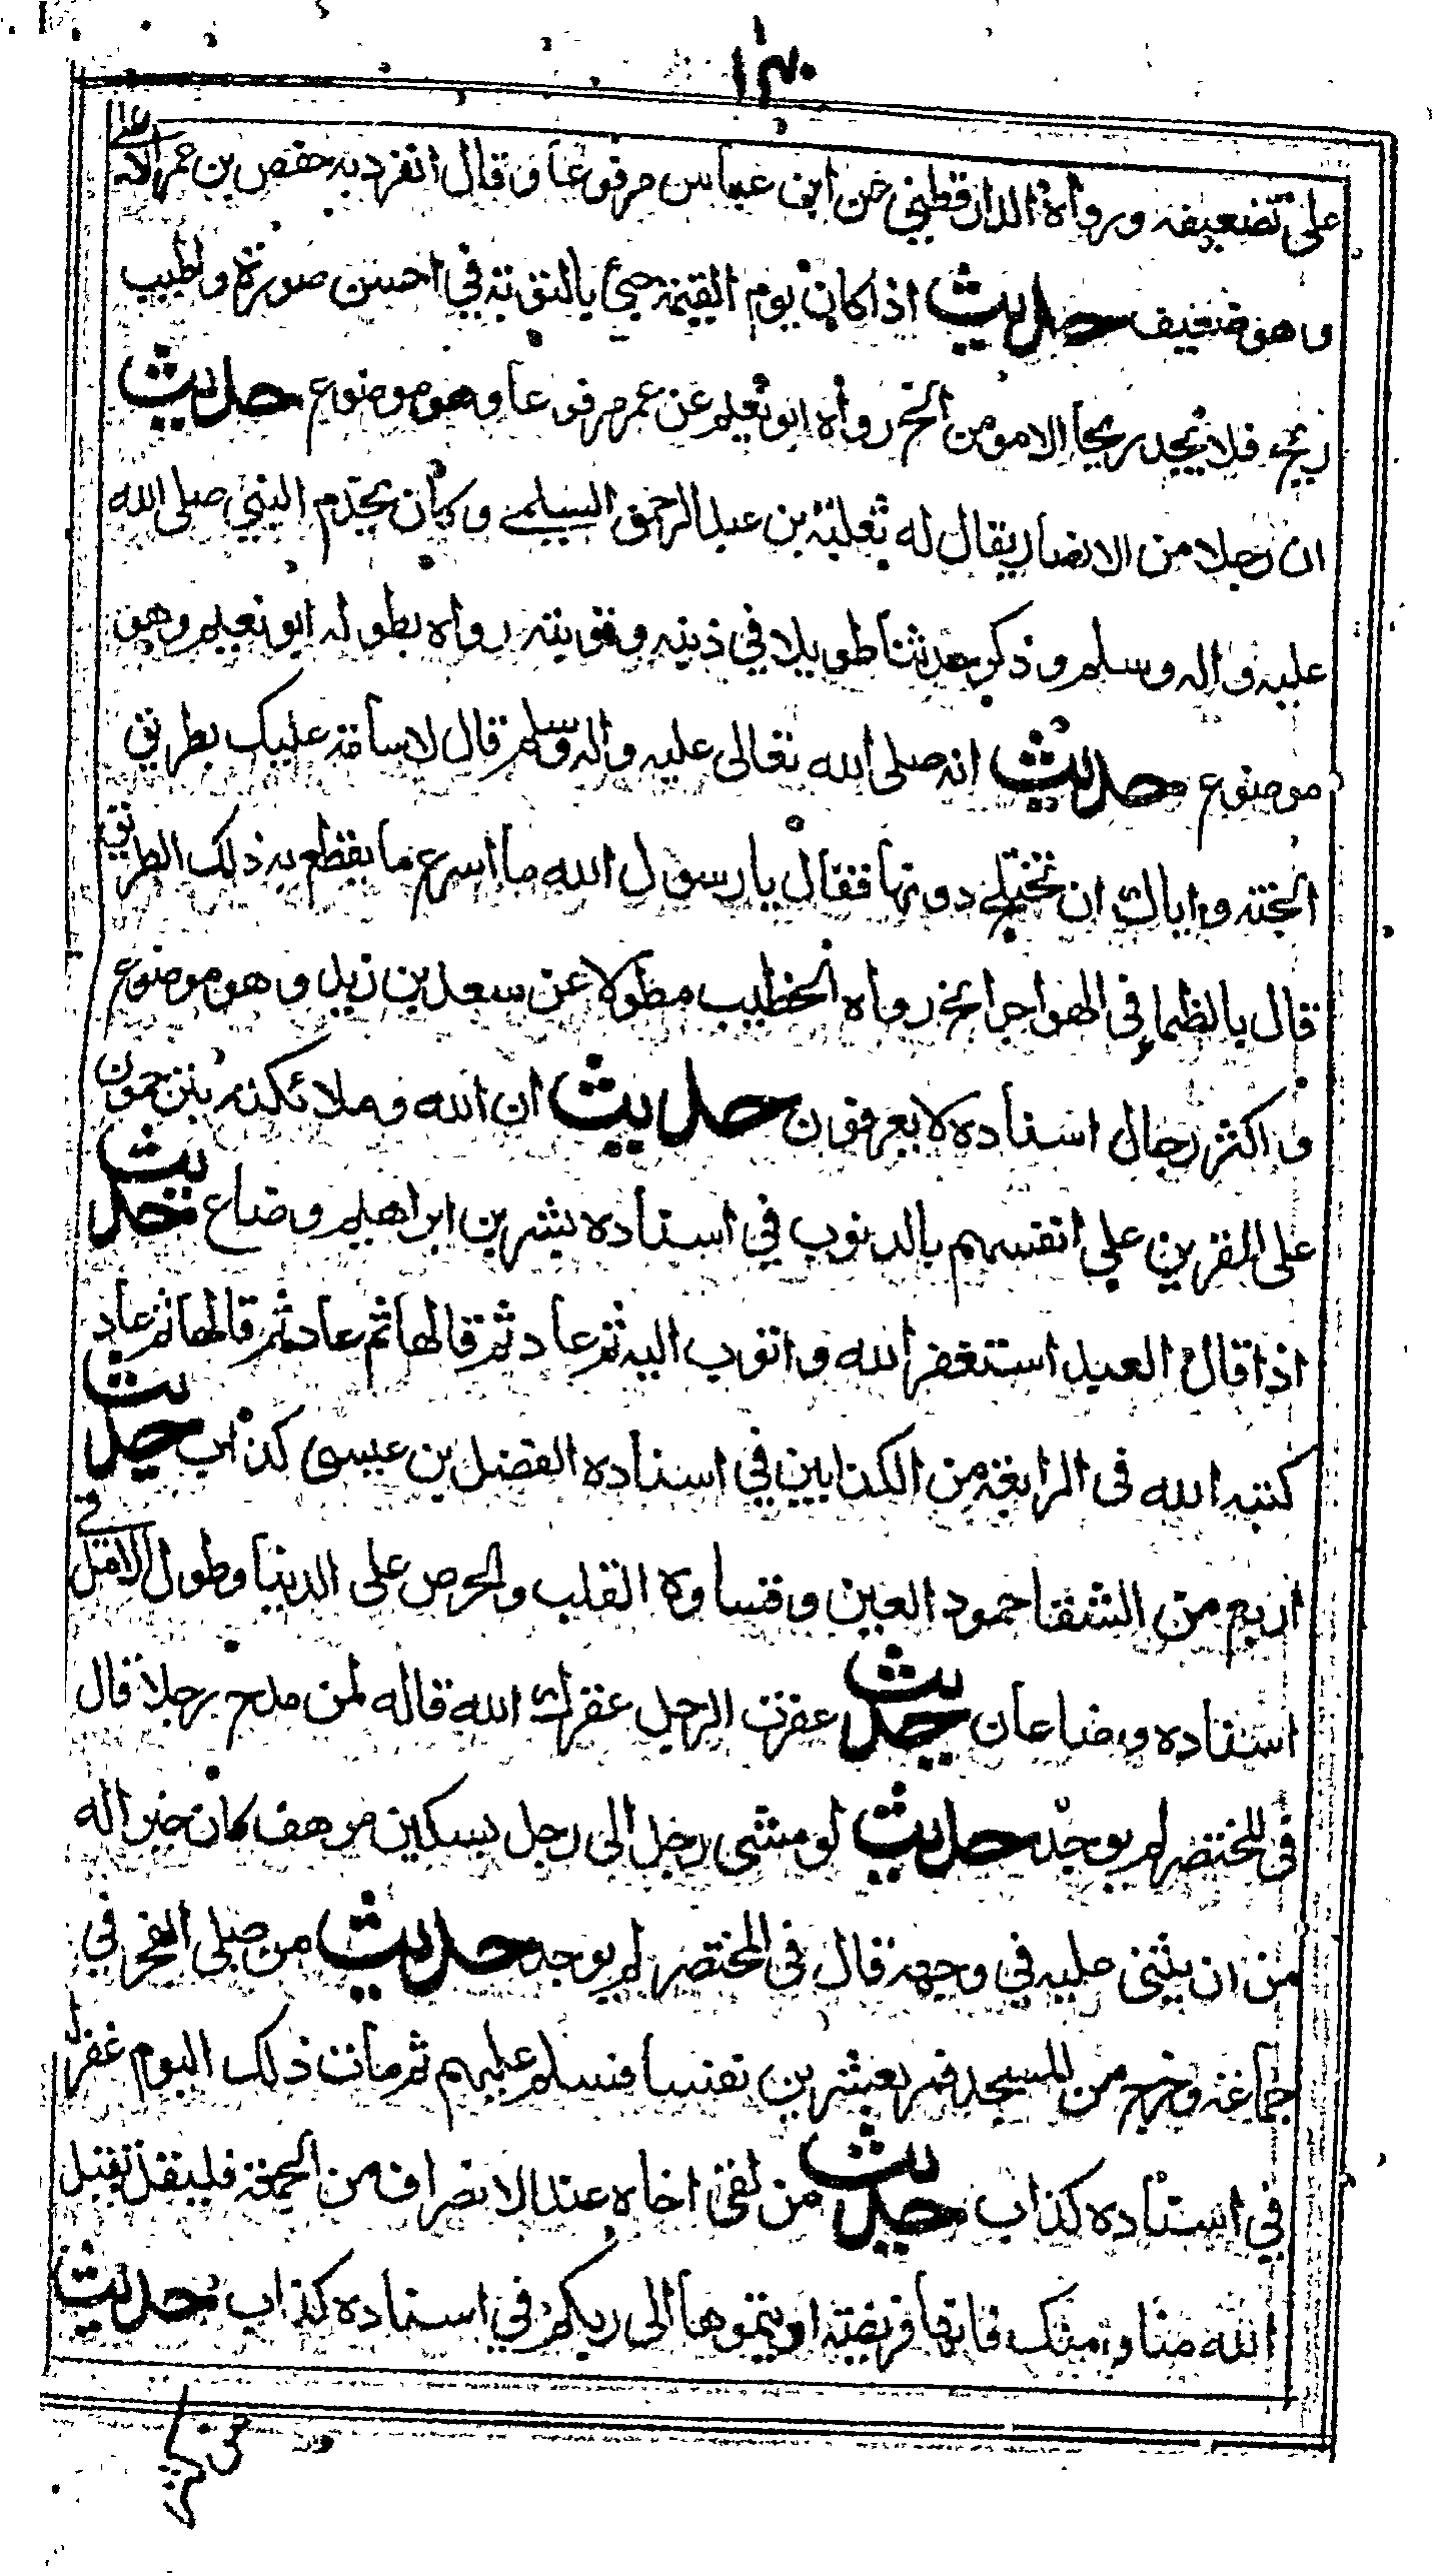 ١٣٠
على تضعيفه ورواه الدارقطني عن ابن عباس مرفوعا وقال انفرد به حفص بن عمر الابلي
وهو ضعيف حديث اذا كان يوم القيمة جئ بالتوبة في احسن صورة واطيب
ريح فلا يجد ريحها الا مومن الخ رواه ابو نعيم عن عمر مرفوعا وهو موضوع حديث
ان رجلا من الانصار يقال له ثعلبة بن عبد الرحمن السلمي وكان يخدم النبي صلى الله
عليه واله وسلم وذكر حديثا طويلا في ذنبه وتوبته رواه بطوله ابو نعيم وهو
موضوع حديث انه صلى الله تعالى عليه واله وسلم قال لاسامة عليك بطريق
الجنة واياك ان تختلج دونها فقال يا رسول الله ما اسرع ما يقطع به ذلك الطريق
قال بالظما في الهواجر الخ رواه الخطيب مطولا عن سعد بن زيد وهو موضوع
واكثر رجال اسناده لا يعرفون حديث ان الله وملائكته يترحمون
على المقرين على انفسهم بالذنوب في اسناده بشر بن ابراهيم وضاع حديث
اذا قال العبد استغفر الله واتوب اليه ثم عاد ثم قالها ثم عاد ثم قالها ثم عاد
كتبه الله في الرابعة من الكذابين في اسناده الفضل بن عيسى كذاب حديث
اربع من الشقا جمود العين وقساوة القلب والحرص على الدنيا وطول الامل في
اسناده وضاعان حديث عقرت الرجل عقرك الله قاله لمن مدح رجلا قال
في المختصر لم يوجد حديث لو مشى رجل الى رجل بسكين مرهف كان خيرا له
من ان يثني عليه في وجهه قال في المختصر لم يوجد حديث من صلى الفجر في
جماعة وخرج من المسجد فمر بعشرين نفسا فسلم عليهم ثم مات ذلك اليوم غفر له
في اسناده كذاب حديث من لقى اخاه عند الانصراف من الجمعة فليقل تقبل
الله منا ومنك فانها فريضة اديتموها الى ربكم في اسناده كذاب حديث